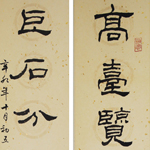 高臺覽
巨石分
辛卯年十月初五